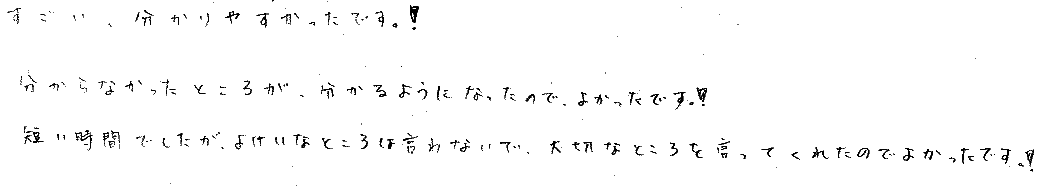 すごい、分かりやすかったです。!
分からなかったところが、分かるようになったので、よかったです。!
短い時間でしたが、よけいなところは言わないで、大切なところを言ってくれたのでよかったです。!